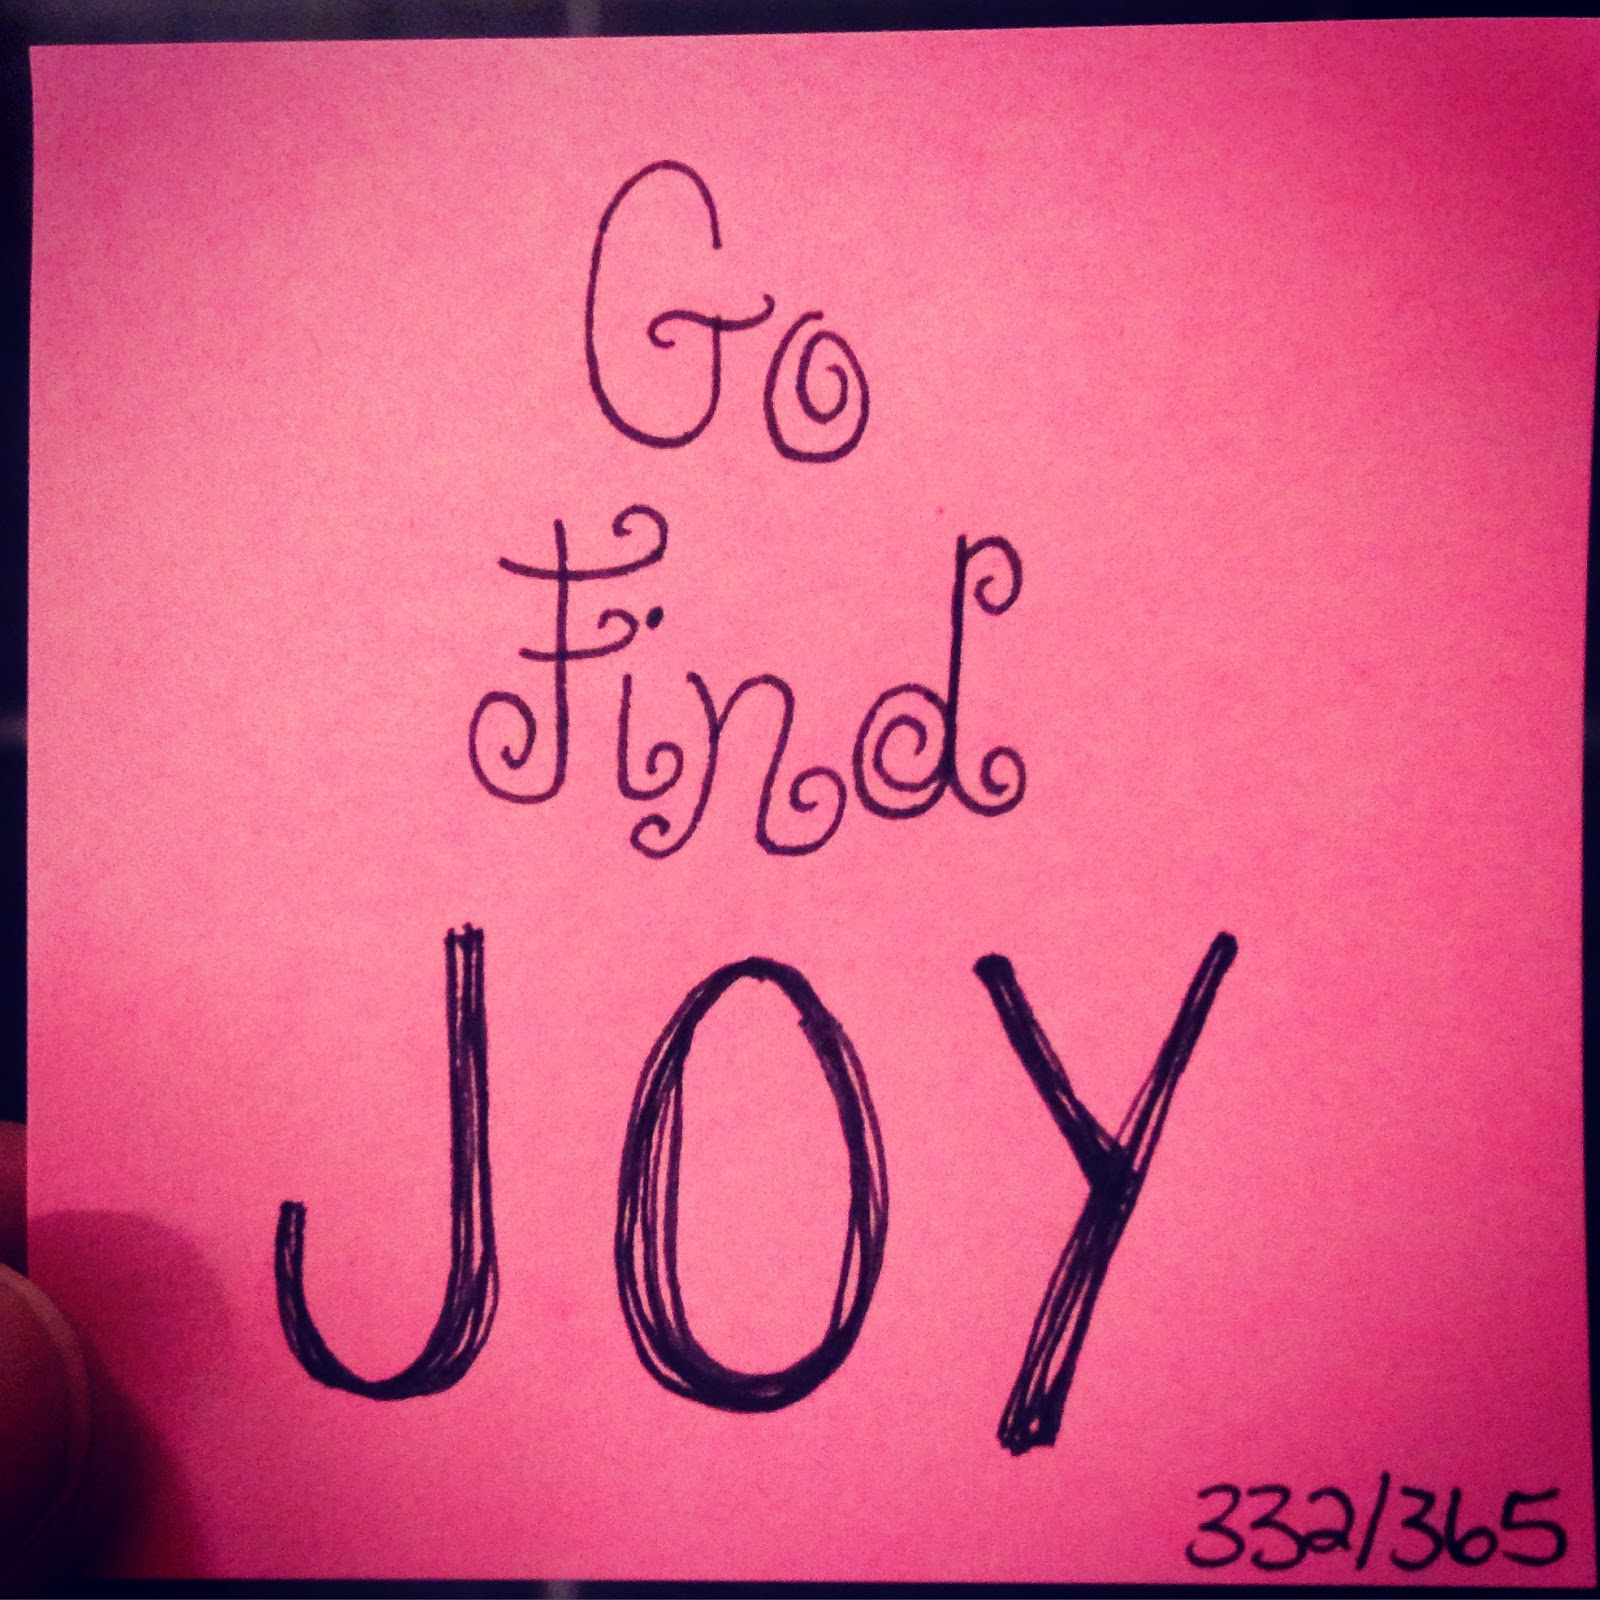 Go
Find
JOY
332/365